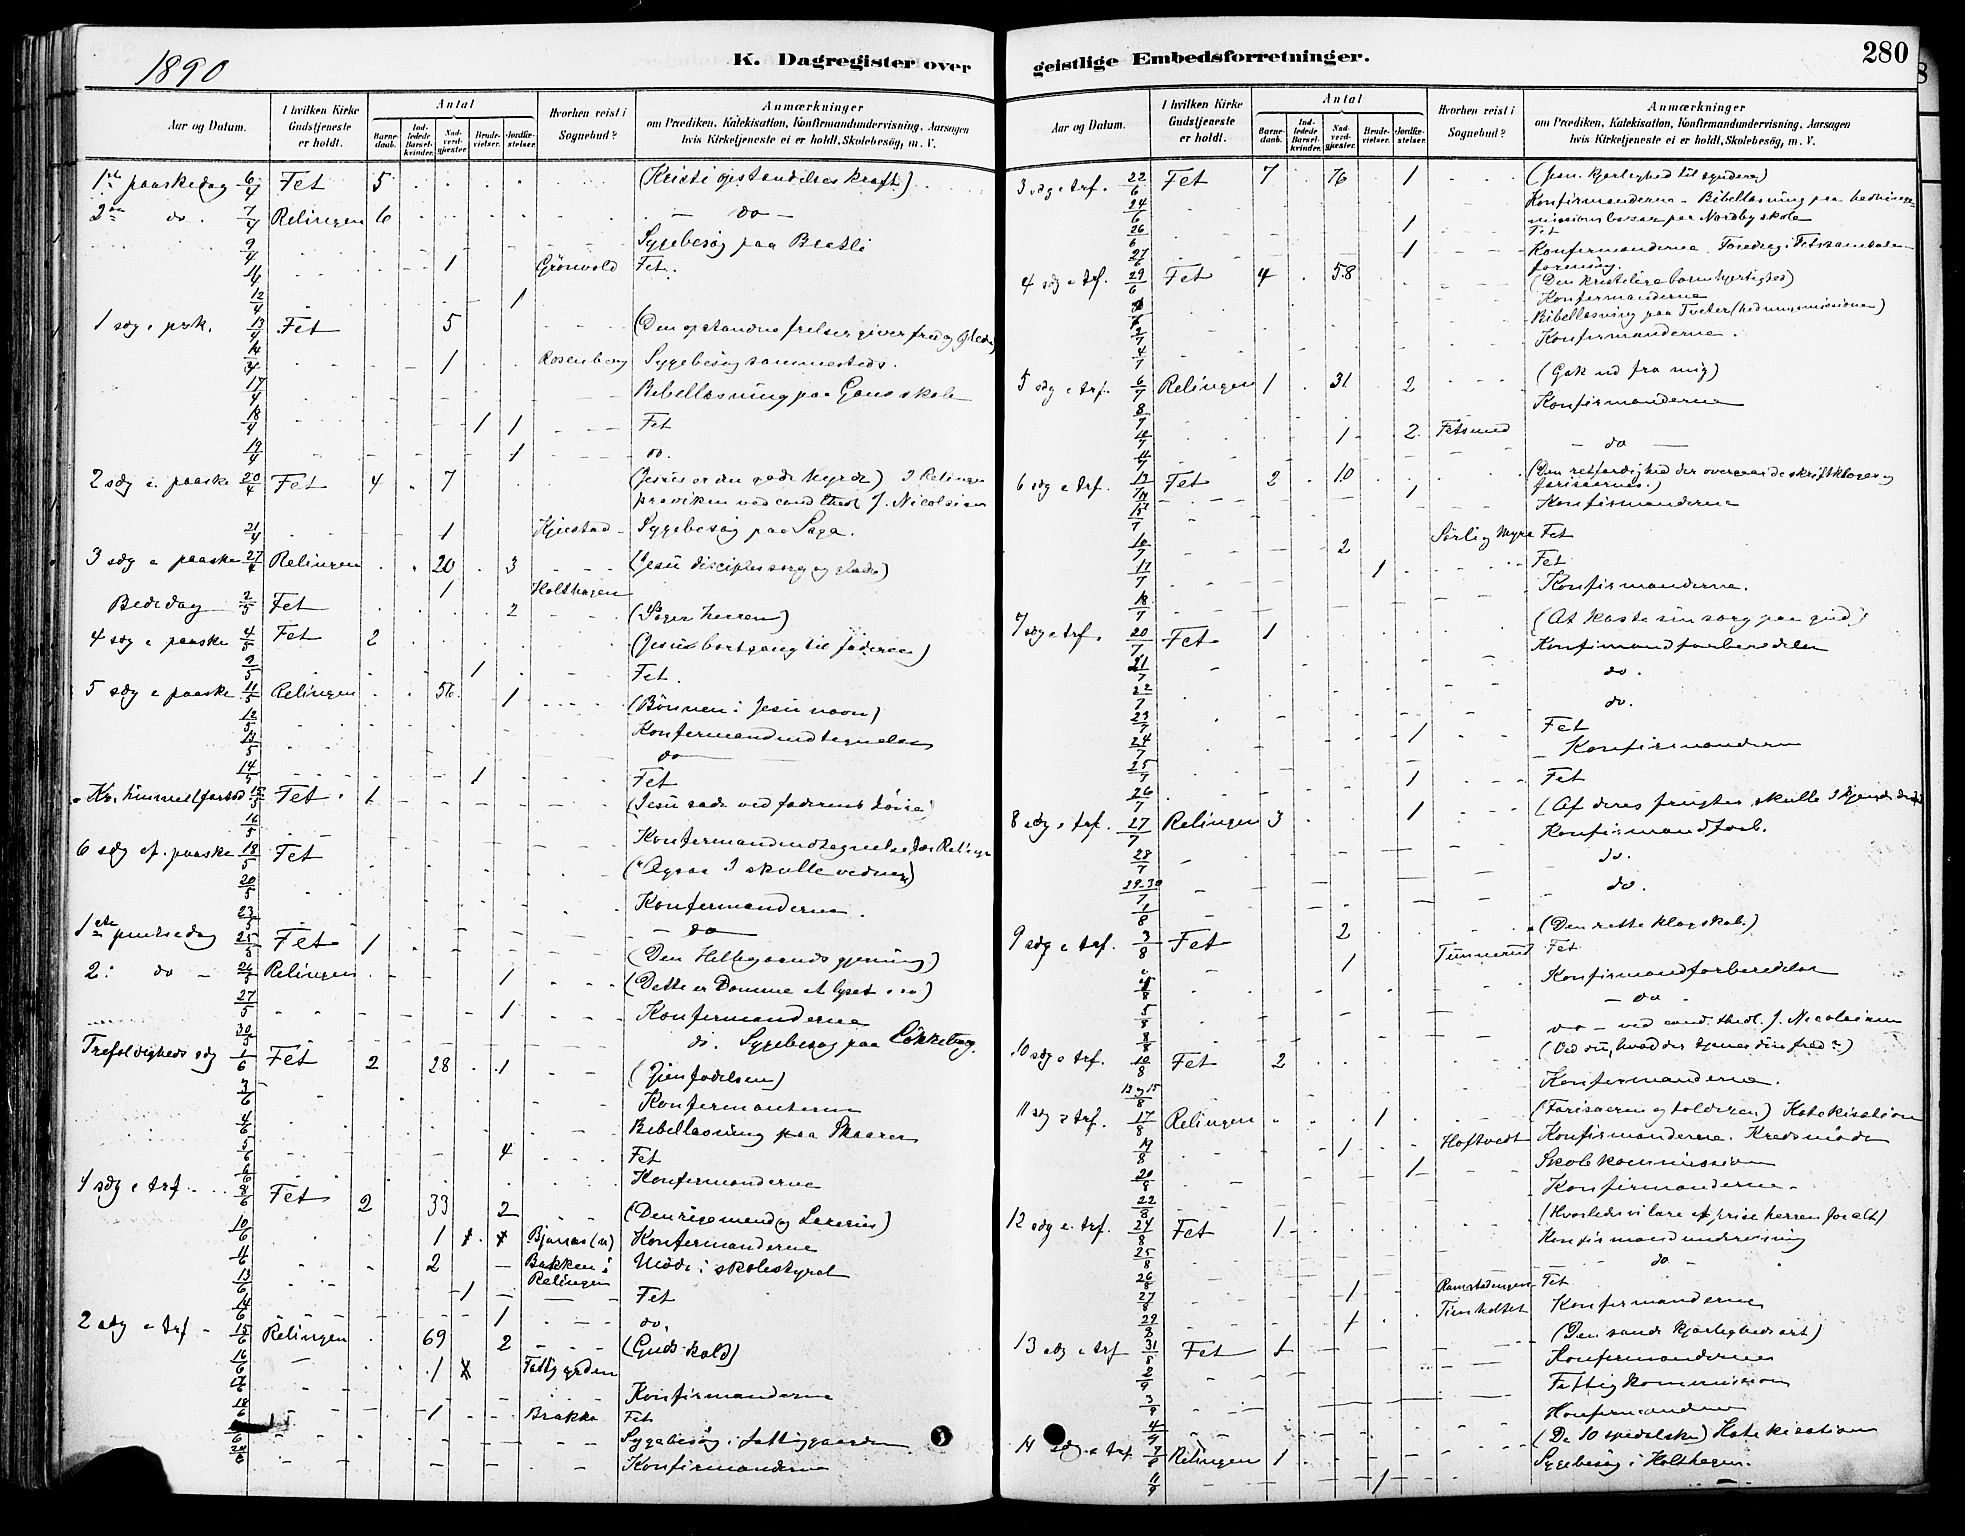 1890
K. Dagregister over
Aar og Datum.
I hvilken Kirke Gudstjeneste er holdt.
Antal
Barnedaab.
Indledede Barselkvinder.
Nadverdgjæster.
Brudevielser.
Jordfæstelser.
Hvorhen reist i Sognebud?
Anmærkninger
om Prædiken, Katekisation, Konfirmandundervisning, Aarsagen
hvis Kirketjeneste ei er holdt, Skolebesøg, m. V.
1ste paaskedag 6/4 Fet 5 (Kristi opstandelses kraft)
2den do. 7/4 Relingen 6 — do —
9/4 Sygebesøg paa Brasli
11/4 1 Grönvold Fet.
12/4 1
1 søg e. psk. 13/4 Fet 5 (Den opstandne frelser giver fred og glæde)
14/4 1 Rosenberg Sygebesøg sammesteds.
17/4 Bibellæsning paa Gans skole
18/4 1 1 Fet
19/4 1 do.
2 søg e. paaske 20/4 Fet 4 7 (Jesus er den gode hyrde) I Relingen
prædiken ved cand. theol. J. Nicolaisen
21/4 1 Kjustad Sygebesøg paa Saga.
3 søg e paaske 27/4 Relingen 20 3 (Jesu disciples sorg og glæde)
1 Holthagen
Bededag 2/5 Fet 2 (Søger herren)
4 søg e paaske 4/5 Fet 2 (Jesus bortgang til faderen)
9/5 1 Fet.
5 søg e paaske 11/5 Relingen 56 1 (Bønnen i Jesu navn)
12/5 Konfirmandindtegnelse
13/5 do
14/5 1 Fet
Kr. himmelfartsd 15/5 Fet 1 (Jesu sæde ved faderens høire)
16/5 Konfirmandindtegnelse for Relingen
6 søg ef. paaske 18/5 Fet (Ogsaa I skulle vidne)
20/5 Konfirmanderne.
23/5 — do —
1ste pintsedag 25/5 Fet 1 (Den Helligaands gjerning)
2. do 26/5 Relingen 1 (Dette er Dommen at lyset o.s.v)
27/5 1 Konfirmanderne
30/5 do. Sygebesøg paa Løkkeberg.
Trefoldigheds søg 1/6 Fet 2 28 1 (Gjenfødelsen)
3/6 Konfirmanterne
4/6 Bibellæsning paa Skaarer
5/6 4 Fet
6/6 Konfirmanderne
1 søg e trf. 8/6 Fet 2 33 2 (Den rige mand og Lazarus)
10/6 1 Konfirmanderne
11/6 2 Bakken i Relingen Møde i skolestyret
13/6 1 Fet
14/6 1 do.
2 søg e trf 15/6 Relingen 69 2 (Guds kald)
16/6 1 Fattiggrden
17/6 Konfirmanderne
18/6 1 Brakka Fet
Sygebesøg i fattiggaarden
20/6 Konfirmanderne
geistlige Embedsforretninger.
280
Aar og Datum.
I hvilken Kirke Gudstjeneste er holdt.
Antal
Barnedaab.
Indledede Barselkvinder.
Nadverdgjæster.
Brudevielser.
Jordfæstelser.
Hvorhen reist i Sognebud?
Anmærkninger
om Prædiken, Katekisation, Konfirmandundervisning, Aarsagen
hvis Kirketjeneste ei er holdt, Skolebesøg, m. V.
3 søg e trf. 22/6 Fet 7 76 1 (Jesu kjærlighed til syndere)
24/6 Konfirmanderne - Bibellæsning paa hednings-
missionsbasar paa Nordby skole
26/6 1 Fet
27/6 1 Konfirmanderne. Foredrag i Fets samtale-
forening.
4 søg e trf. 29/6 Fet 4 58 (Den kristelige barmhjertighed)
Konfirmanderne
Bibellæsning paa Tveter (hedningemissionen)
2/7 Konfirmanderne.
4/7
5 søg e trf. 6/7 Relingen 1 31 2 (Gak ud fra mig)
8/7 Konfirmanderne
10/7 1 2 Fetsund
11/7 — do —
6 søg e trf. 13/7 Fet 2 10 (Den retfærdighed der overgaar de skriftkloges og
farisæernes.)
14/7 1 Konfirmanderne
15/7
2 Sørli og Myra Fet
17/7 1 Fet
18/7 Konfirmanderne.
7 søg e trf. 20/7 Fet 1 (At kaste sin sorg paa gud)
21/7 Konfirmandforberedelse
22/7 do.
23/7 do.
24/7 1 Fet
25/7 Konfirmanderne
26/7 1 Fet
8 søg e trf. 27/7 Relingen 3 1 (Af deres frugter skulle I kjende dem)
28/7 Konfirmandforb.
29-30/7 do.
1/8 do.
9 søg e trf. 3/8 Fet 2 (Den rette klogskab.)
1 Tunnerud Fet
5/8 Konfirmandforberedelse
— do -
8/8 do - ved cand. theol. J. Nicolaisen
10 søg e trf. 10/8 Fet 2 (Ved du, hvad der tjener din fred?)
13 og 15/8 Konfirmanderne.
11 søg e trf. 17/8 Relingen 1 (Farisæeren og tolderen) Katekisation
19/8 1 Hoftvedt Konfirmanderne. Kredsmøde
20/8 1 Skolekommission
22/8 Konfirmanderne.
12 søg e. trf. 24/8 Fet 1 (Hvorledes vi lære at prise herren for alt)
25/8 Konfirmandundervisning
26/8 — do —
27/8 1 Ramstadengen Fet
29/8 1 Timholtet Konfirmanderne
13 søg e trf 31/8 Fet 1 (Den sande kjærligheds art)
2/9 Konfirmanderne
3/9 Fattigkommission
4/9 Konfirmanderne
14 søg e trf. 7/9 Relingen 1 (De 10 spedalske) Katekisation
11/9 1 Sygebesøg i Holthagen.